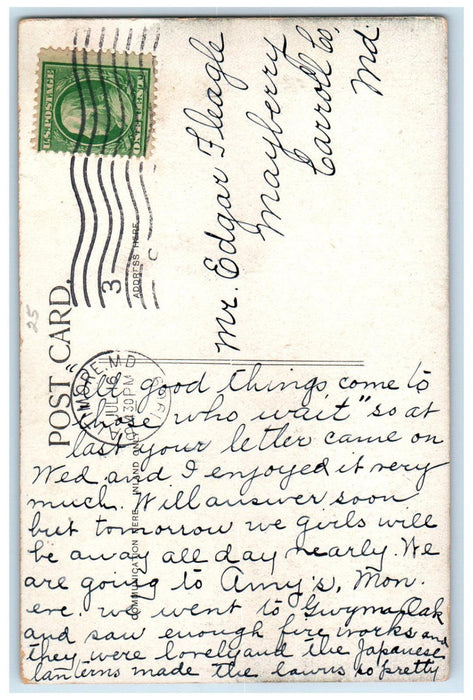 U.S. POSTAGE
ONE CENT
Mr. Edgar Fleagle
Mayberry
Carroll Co,
Md
3
ADDRESS HERE
25
POST CARD.
MORE, MD
JUL 16
30PM
COMMUNICATION HERE INLAND ONLY
"All good things come to
those who wait" so at
last your letter came on
Wed and I enjoyed it very
much. Will answer soon
but tomorrow we girls will
be away all day nearly. We
are going to Amy's, Mon.
eve. we went to Gwynn Oak
and saw enough fire works and
they were lovely and the Japanese
lanterns made the lawns so pretty